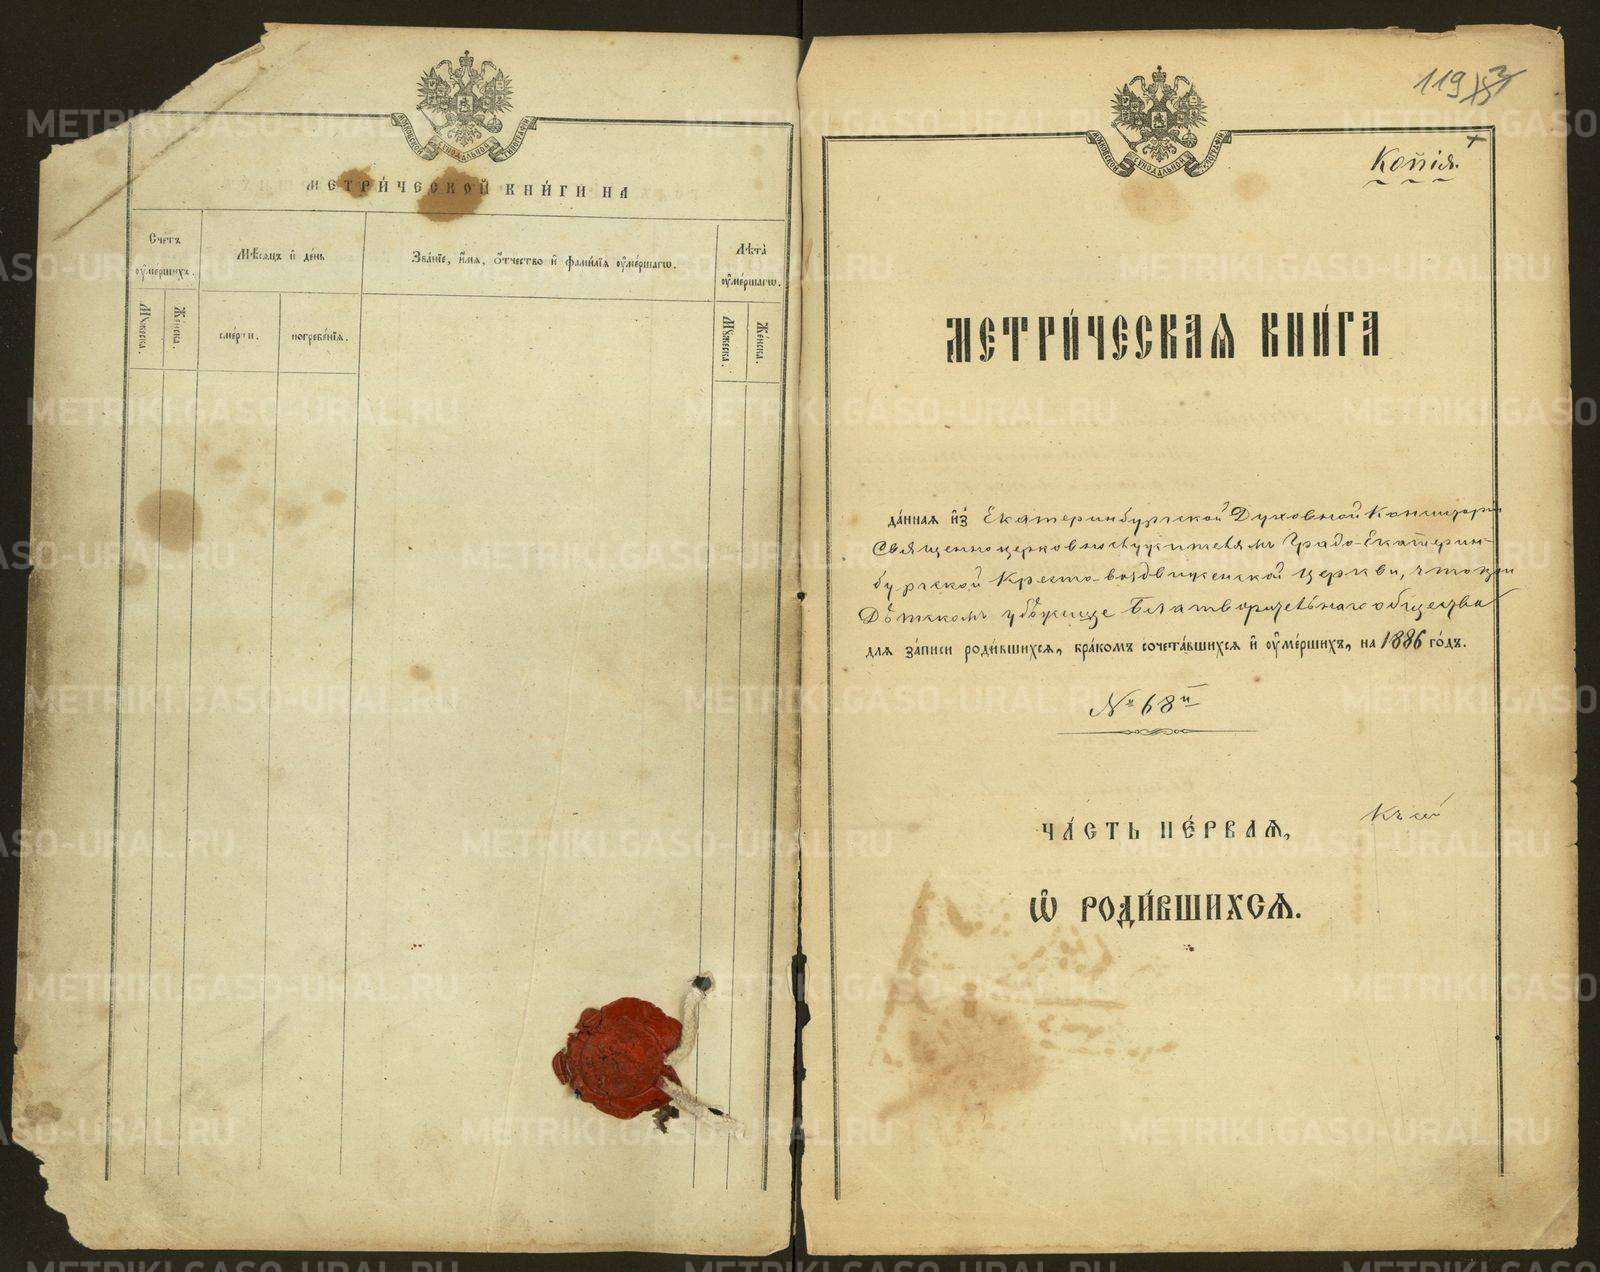 МОСКОВСКОЙ СѴНОДАЛЬНОЙ ТИПОГРАФІИ
МЕТРИ́ЧЕСКОЙ КНИ́ГИ НА
Сче́тъ ᲂу҆ме́ршихъ.
Мѣ́сяцъ и҆ де́нь
Зва́нїе, и҆́мя, ѻ҆́тчество и҆ фами́лїя ᲂу҆ме́ршагѡ.
Лѣта̀ ᲂу҆ме́ршагѡ.
Мꙋ́жеска.
Же́нска.
сме́рти.
погребе́нїя.
Мꙋ́жеска.
Же́нска.
119
МОСКОВСКОЙ СѴНОДАЛЬНОЙ ТИПОГРАФІИ
Копія.
МЕТРИ́ЧЕСКАѦ КНИ́ГА
да́нная и҆з̾ Екатеринбургской Духовной Консисторіи
Священноцерковнослужителямъ Градо-Екатерин-
бургской Кресто-воздвиженской церкви, что при
Дѣтскомъ убѣжище Благотворительнаго общества
для за́писи роди́вшихся, бра́комъ сочета́вшихся и҆ ᲂу҆ме́ршихъ, на 1886 го́дъ.
№ 68й
ЧА́СТЬ ПЕ́РВАѦ,
Ѽ РОДИ́ВШИХСѦ.
METRIKI.GASO-URAL.RU